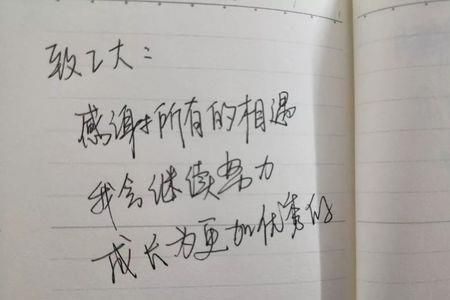 致乙大：
感谢所有的相遇
我会继续努力
成长为更加优秀的